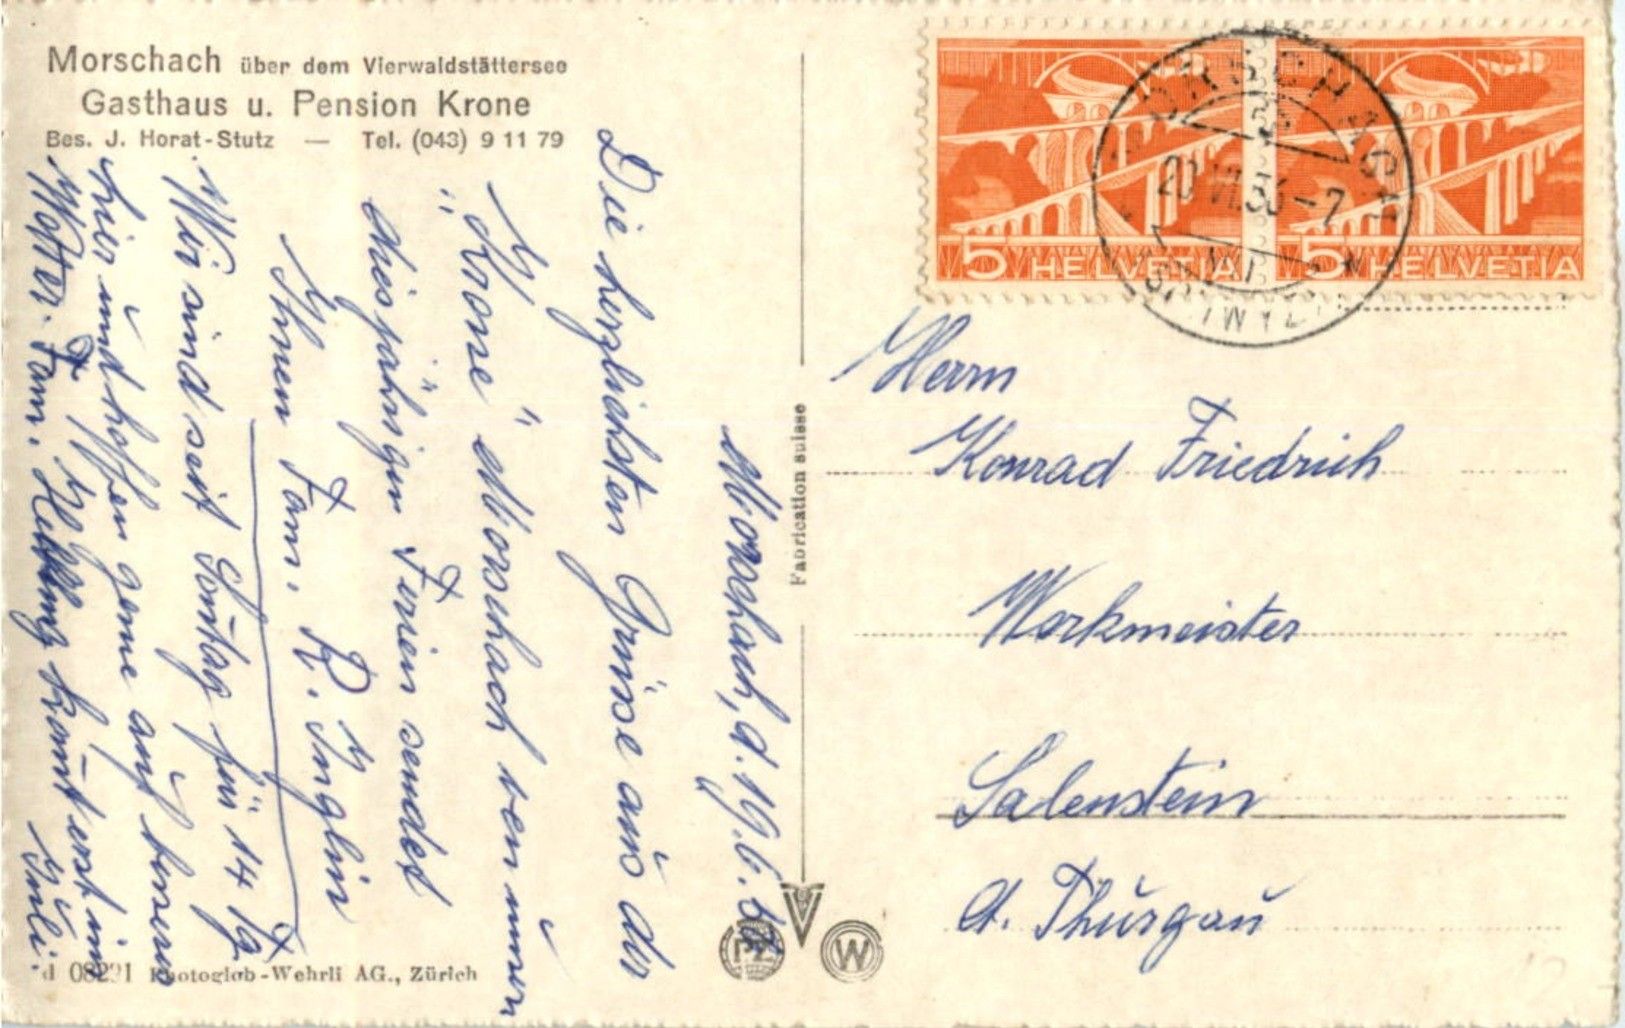 Morschach über dem Vierwaldstättersee
Gasthaus u. Pension Krone
Bes. J. Horat-Stutz — Tel. (043) 9 11 79
Morschach, d. 19. 6.
Die herzlichsten Grüsse aus der
"Krone" Morschach von unsern
diesjährigen Ferien sendet
Ihnen Fam. R. Inglin
Wir sind seit Sontag für 14 Tg
hier und hoffen gerne auf besseres
Wetter. Fam. komt erst im
Juli.
Fabrication suisse
d 08291 Photoglob-Wehrli AG., Zürich
PZ
W
5 HELVETIA
5 HELVETIA
MORSCHACH
20 VI. 53 – 7
(SCHWYZ)
Herrn
Konrad Friedrich
Werkmeister
Salenstein
Ct. Thurgau